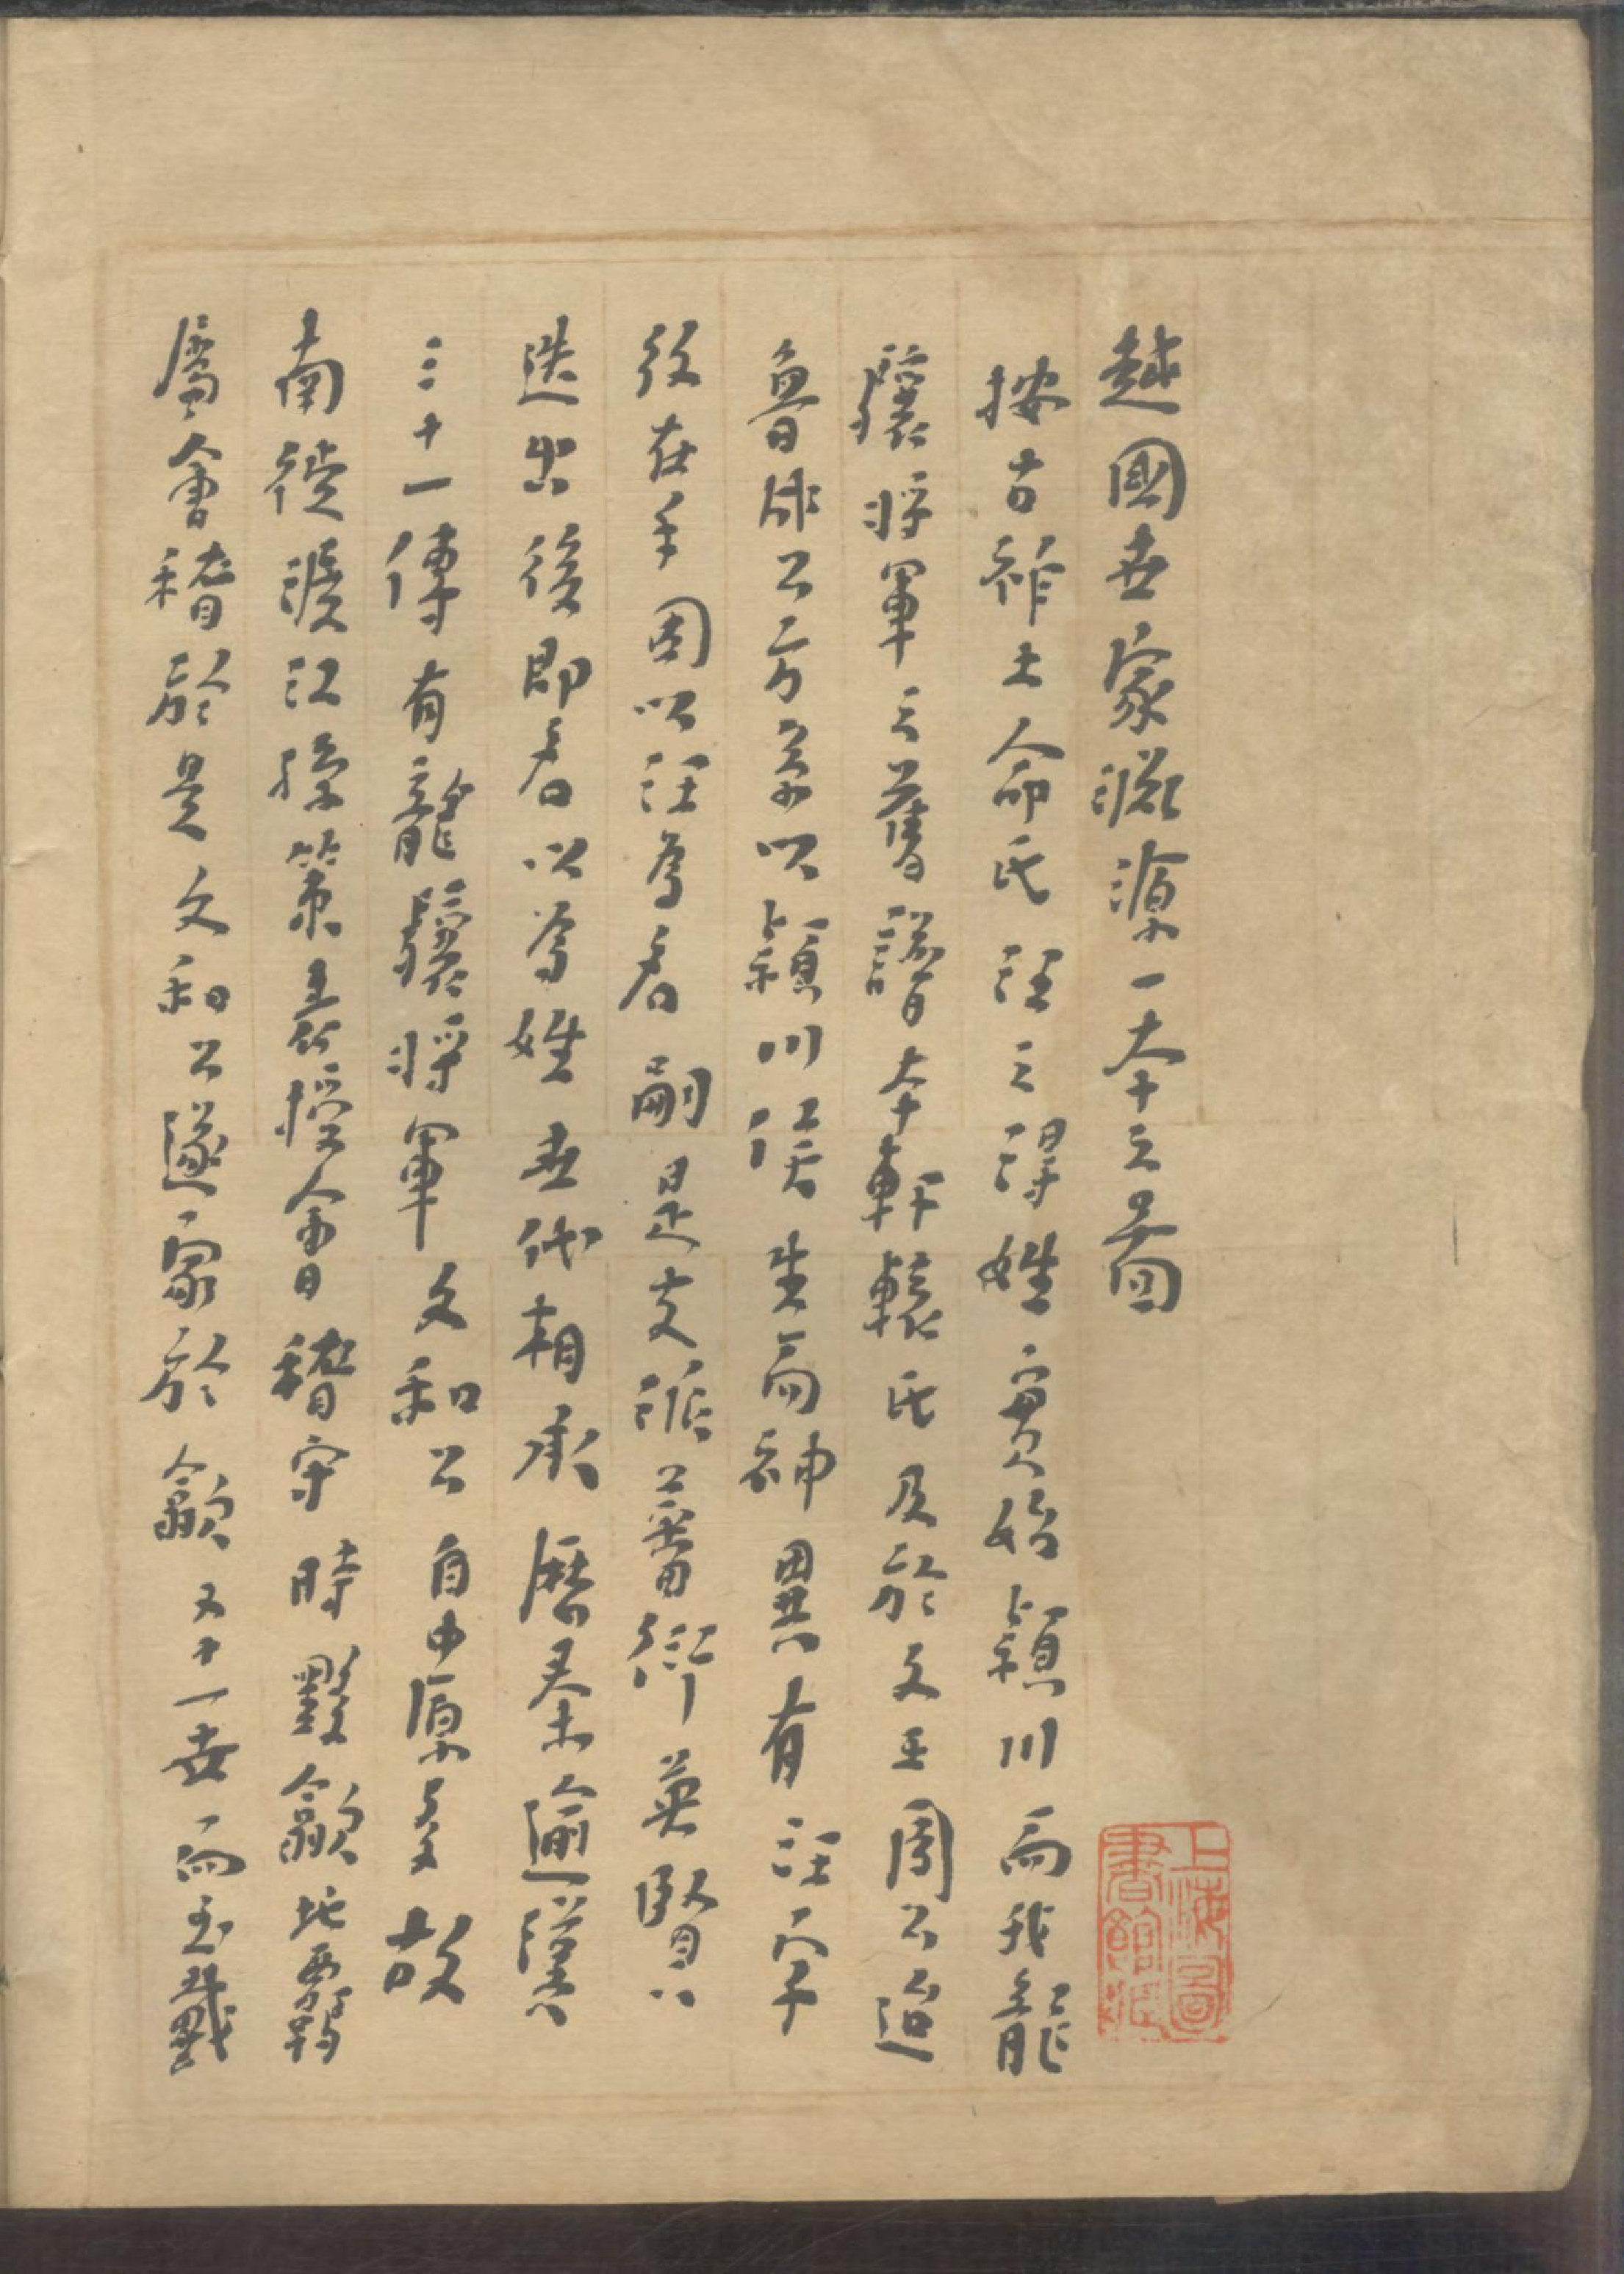 越國世家淵源一本之圖
按古祚土命氏汪之得姓實始潁川而我龍
驤將軍之舊譜本軒轅氏及於文王周公迨
魯成公方案以潁川侯生而神異有汪字
紋在手因以汪為名嗣是支派蕃衍英賢
迭出後即名以為姓世代相承歷秦逾漢
三十一傳有龍驤將軍文和公自中原多故
南徙渡江孫策表授會稽守時黟歙地
屬會稽於是文和公遂家於歙又十一世而至戴
上海圖書館藏